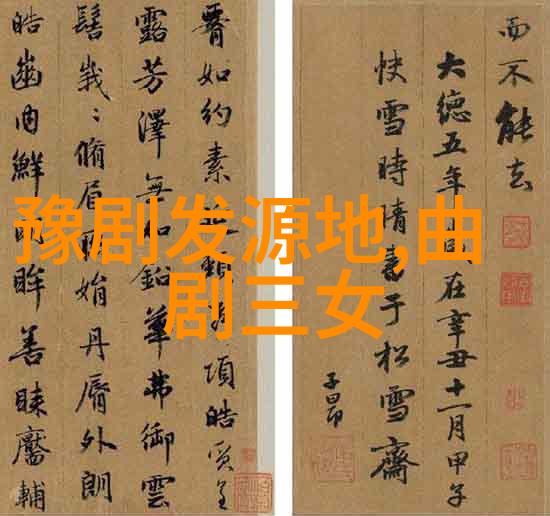 豫剧发源地,曲
剧三女
而不能去
大德五年 在辛丑十一月甲子
快雪時晴書于松雪齋
子昂
如約素 項皓質呈
露芳澤無加鉛華弗御雲
髻峩〻脩眉 娟丹脣外朗
皓齒内鮮明眸善睞靨輔